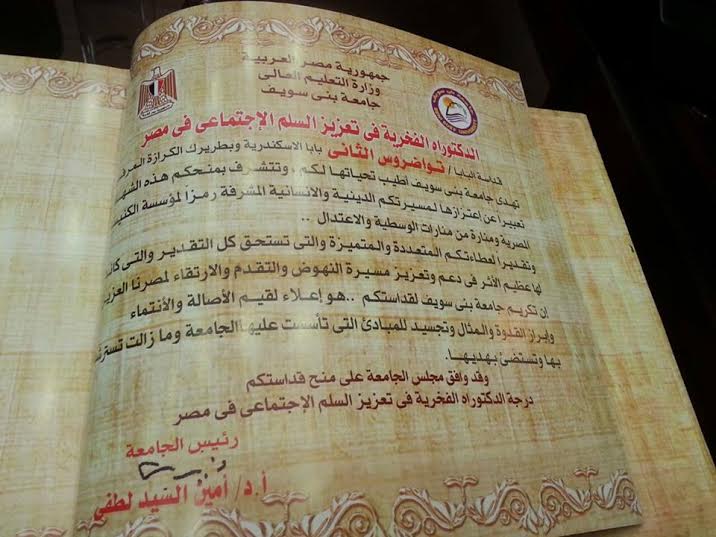 جمهورية مصر العربية
وزارة التعليم العالى
جامعة بنى سويف
الدكتوراه الفخرية فى تعزيز السلم الإجتماعى فى مصر
قداسة البابا / تواضروس الثانى بابا الاسكندرية وبطريرك الكرازة
تهدى جامعة بنى سويف أطيب تحياتها لكم ، وتتشرف بمنحكم هذه
تعبيراً عن إعتزازها لمسيرتكم الدينية والانسانية المشرفة رمزاً لمؤسسة
المصرية ومنارة من منارات الوسطية والاعتدال ..
وتقديراً لعطاءتكم المتعددة والمتميزة والتى تستحق كل التقدير والتى
لها عظيم الأثر فى دعم وتعزيز مسيرة النهوض والتقدم والارتقاء لمصرنا
إن تكريم جامعة بنى سويف لقداستكم ..هو إعلاء لقيم الأصالة والأنتماء
وإبراز القدوة والمثال وتجسيد للمبادئ التى تأسست عليها الجامعة وما زالت
بها وتستضئ بهديها.
وقد وافق مجلس الجامعة على منح قداستكم
درجة الدكتوراه الفخرية فى تعزيز السلم الإجتماعى فى مصر
رئيس الجامعة
أ.د/ أمين السيد لطفى